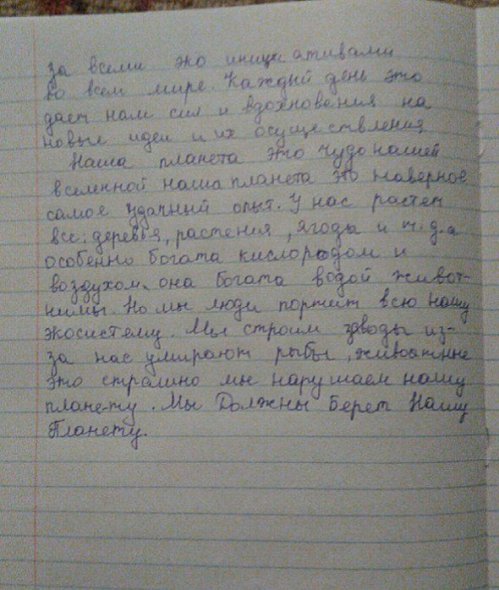 за всеми эко инициативами
во всем мире. Каждый день это
дает нам сил и вдохновения на
новые идеи и их осуществления
Наша планета это чудо нашей
вселнной наша планета это наверное
самое удачный опыт. У нас растет
все: деревья, растения, ягоды и т.д.а
особенно богата кислородом и
воздухом. она богата водой живот-
нимы. Но мы люди портит всю нашу
экосистему. Мы строим заводы из-
за нас умирают рыбы, животные
это страшно мы нарушаем нашу
планету. Мы Должны Берет Нашу
Планету.